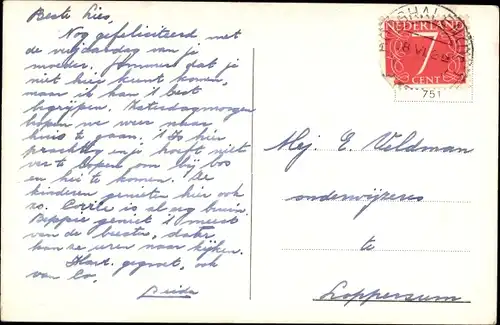 Beste Lies,
Nog gefeliciteerd met
de verjaardag van je
moeder. Jammer dat je
niet hier kunt komen,
maar ik kan 't best
begrijpen. Zaterdagmorgen
hopen we weer naar
huis te gaan. 't Is hier
prachtig en je hoeft niet
ver te lopen om bij bos
en hei te komen. De
kinderen genieten hier ook
zo. is al erg bruin.
Beppie geniet 't meest
van de beesten, daar
kan ze uren naar kijken.
Hart. gegroet, ook
van Co.
NEDERLAND
7
CENT
751
Mej. E. Veldman
onderwijzeres
te
Loppersum